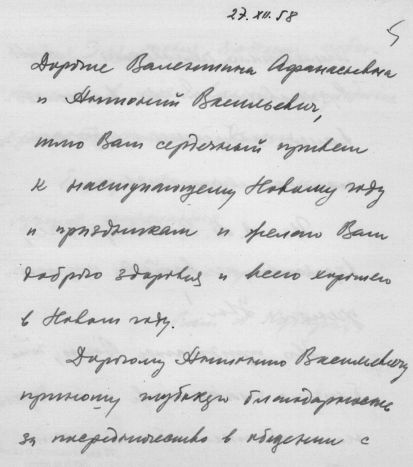 27.XII.58
5
Дорогие Валентина Афанасьевна
и Антоний Васильевич,
шлю Вам сердечный привет
к наступающему Новому году
и праздникам и желаю Вам
доброго здоровья и всего хорошего
в Новом году.
Дорогому Антонию Васильевичу
приношу глубокую благодарность
за посредничество в общении с